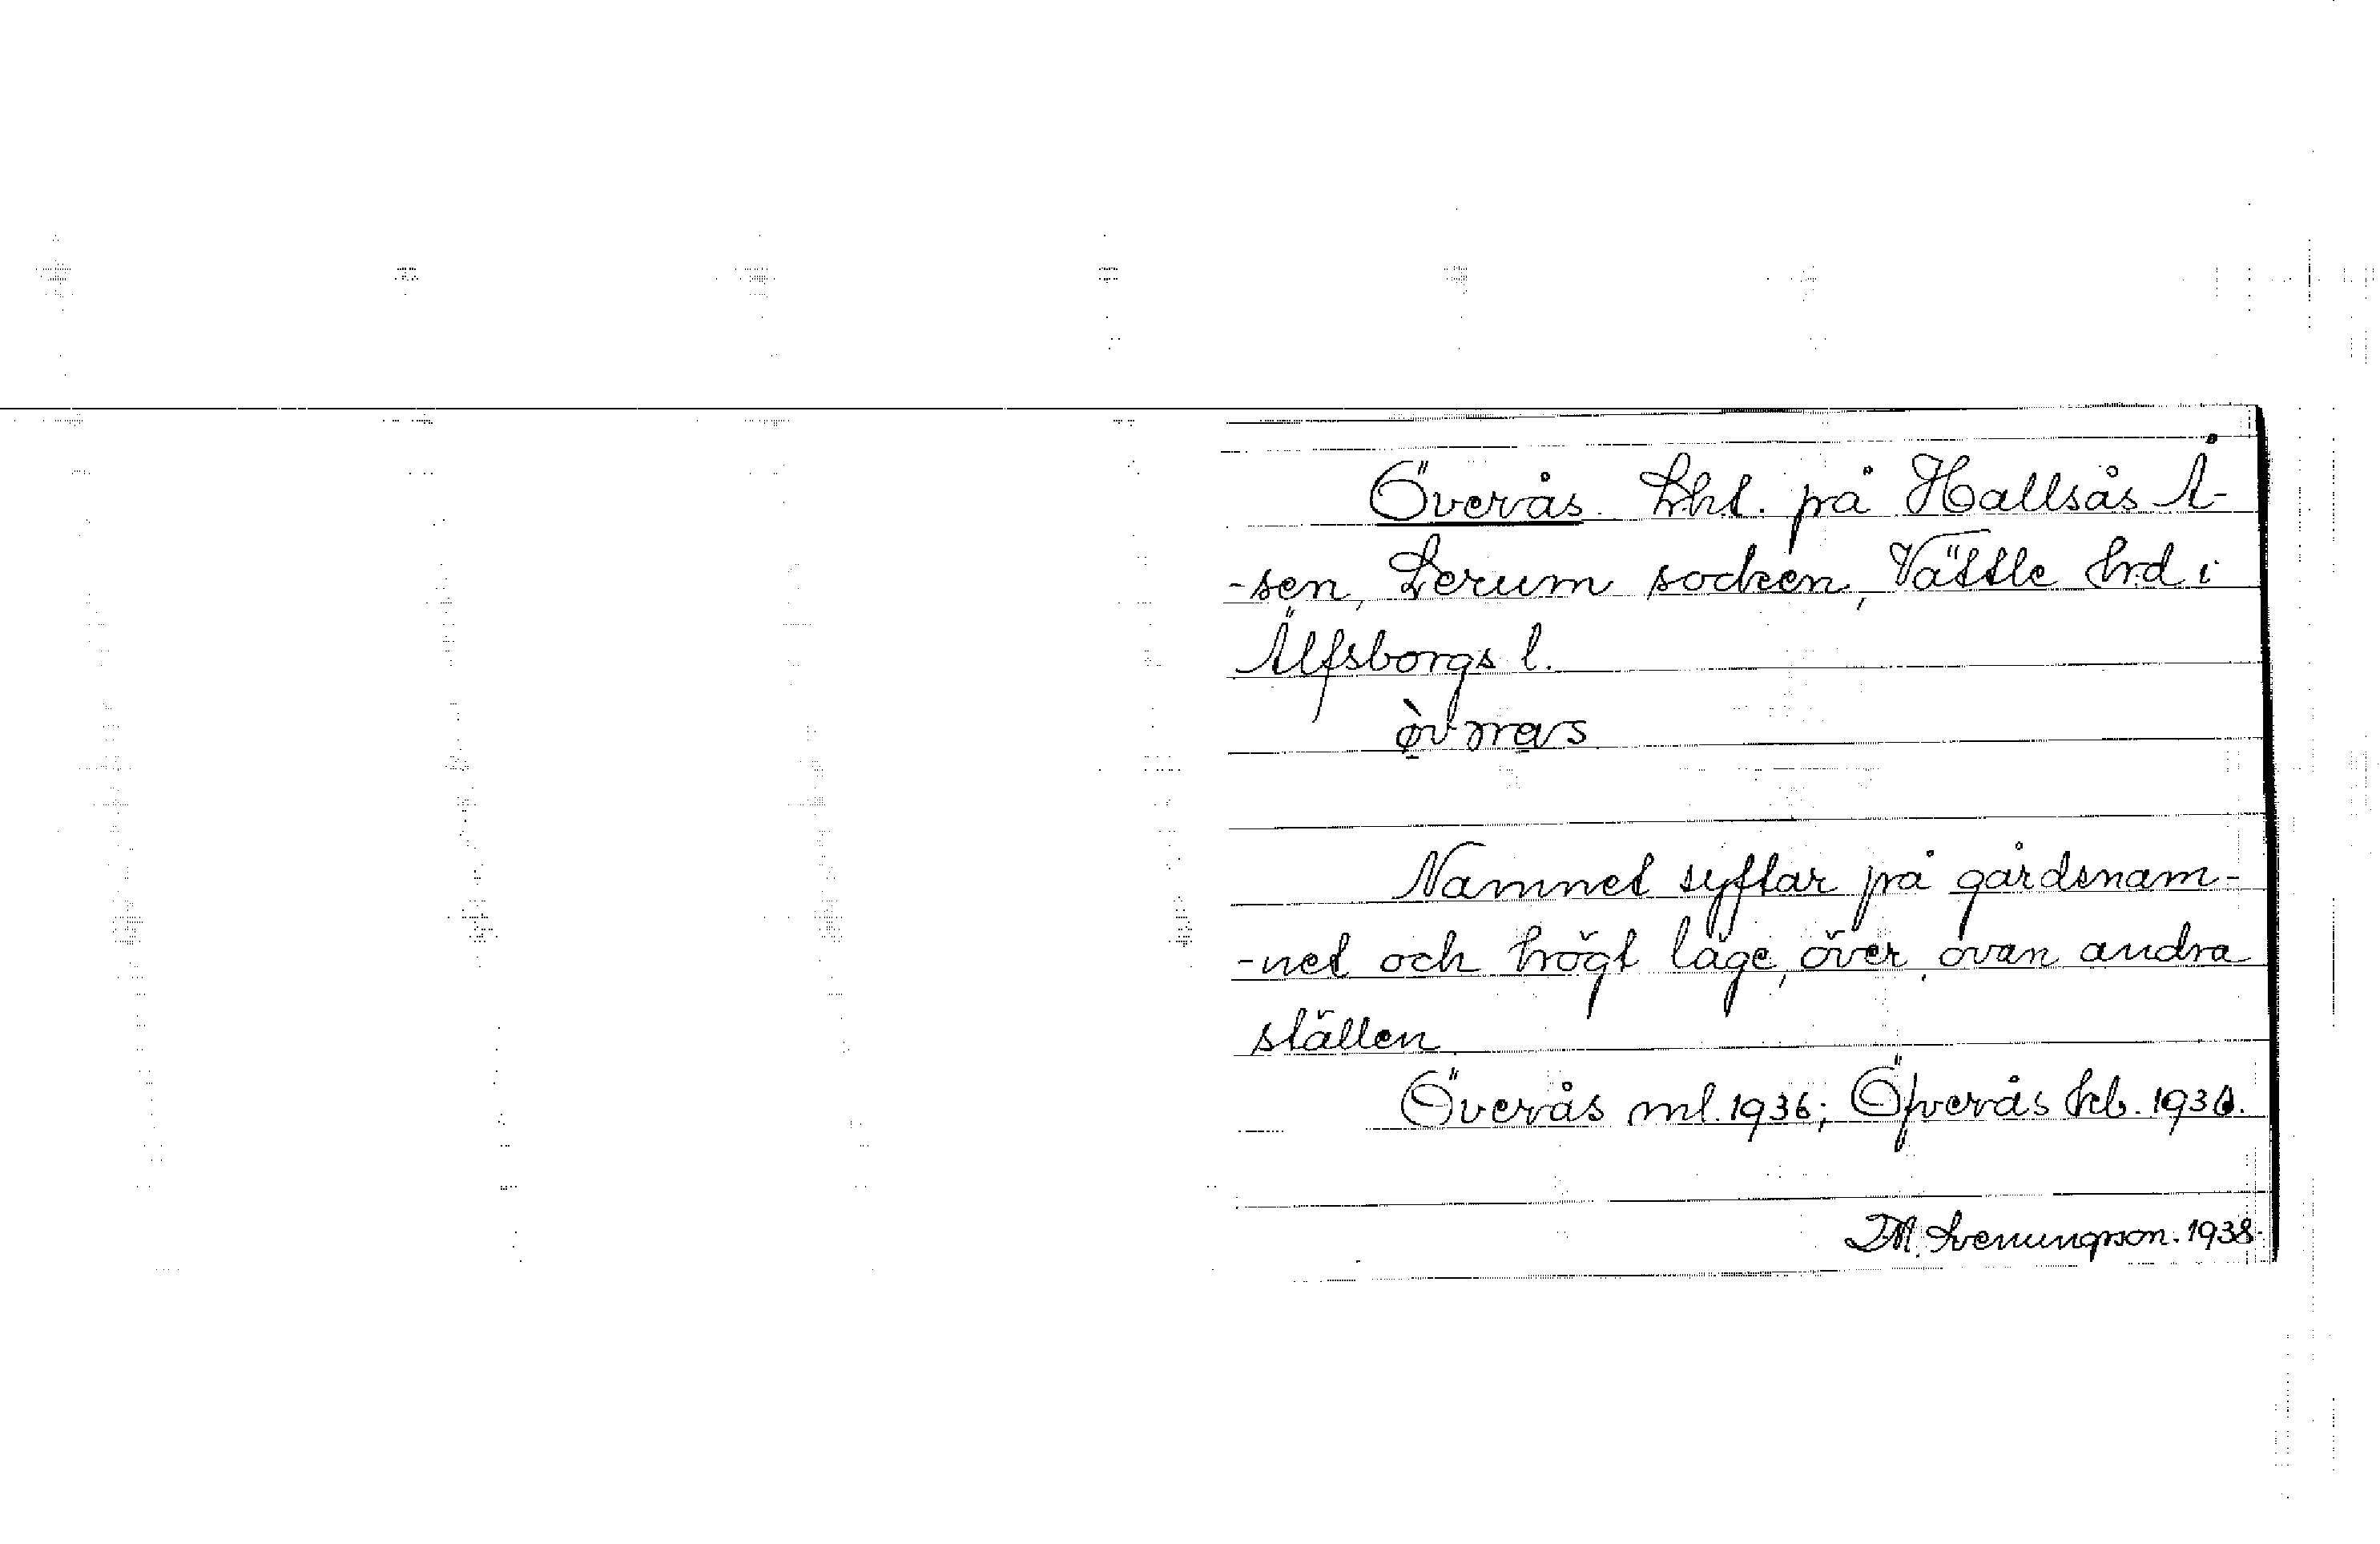 Överås. Lht. på Hallsås Å-
-sen, Lerum socken, Vättle hrd i
Älfsborgs l.
Namnet syftar på gårdsnam-
-net och högt läge, över, ovan andra
ställen.
Överås ml. 1936; Öfverås kb. 1936.
M. Svenungson. 1938.